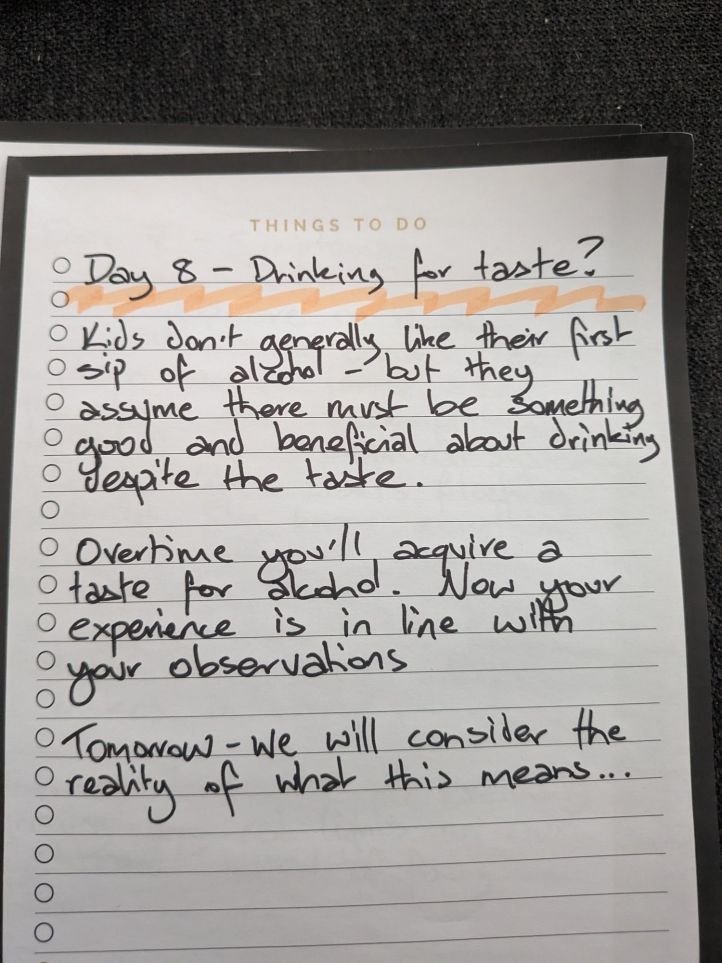 THINGS TO DO
Day 8 - Drinking for taste?
Kids don't generally like their first
sip of alcohol - but they
assume there must be something
good and beneficial about drinking
despite the taste.
Overtime you'll acquire a
taste for alcohol. Now your
experience is in line with
your observations
Tomorrow - we will consider the
reality of what this means...